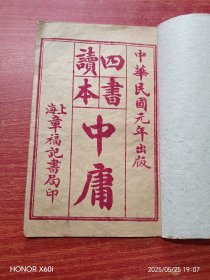 中華民國元年出版
四書
讀本
中庸
上海章福記書局印
HONOR X60i
2025/05/25 19:07